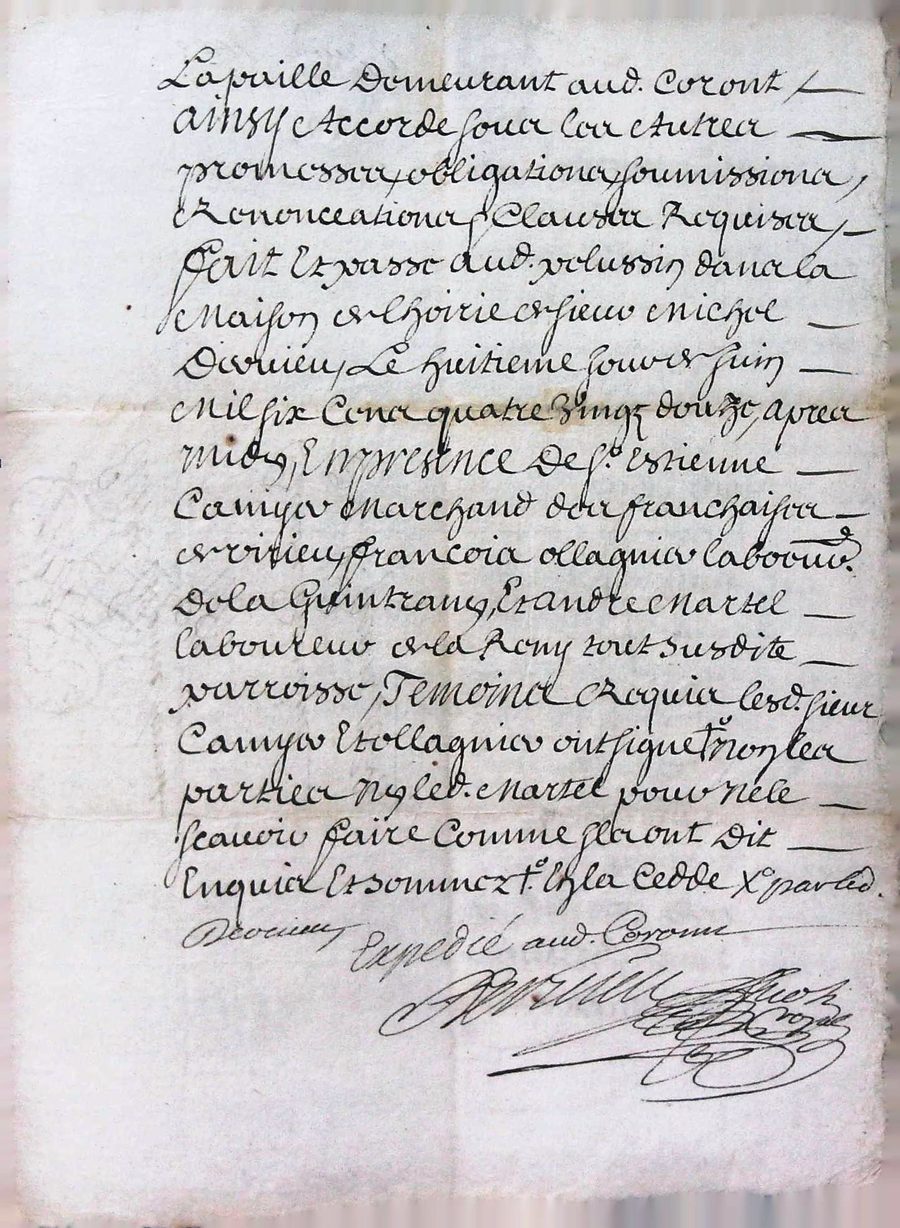 Lapaille Demeurant aud. Coront
ainsy Accordé sous les Autres
promesses, obligations, soumissions,
Renonceations, Clauses Requises,
fait Et passé aud. pelussin dans la
Maison de lhoirie de sieur Michel
Dervieu, Le huitieme jour de juin
Mil six Cens quatre vingz douze, apres
midy, En presence De sr. Estienne
Camyer Marchand des franchises
de virieu, francois ollagnier laboeur.
De la Guintrany, Et andre Martel
laboureur de la Rony tout Susdite
parroisse, Temoins Requis lesd. sieur
Camyer Et ollagnier ont signe non les
parties Ny led. Martel pour ne le
scavoir faire Comme ils ont Dit
Enquis Et sommez Et la Cedde par led.
Dervieu
Expedié aud. Coront
Dervieu